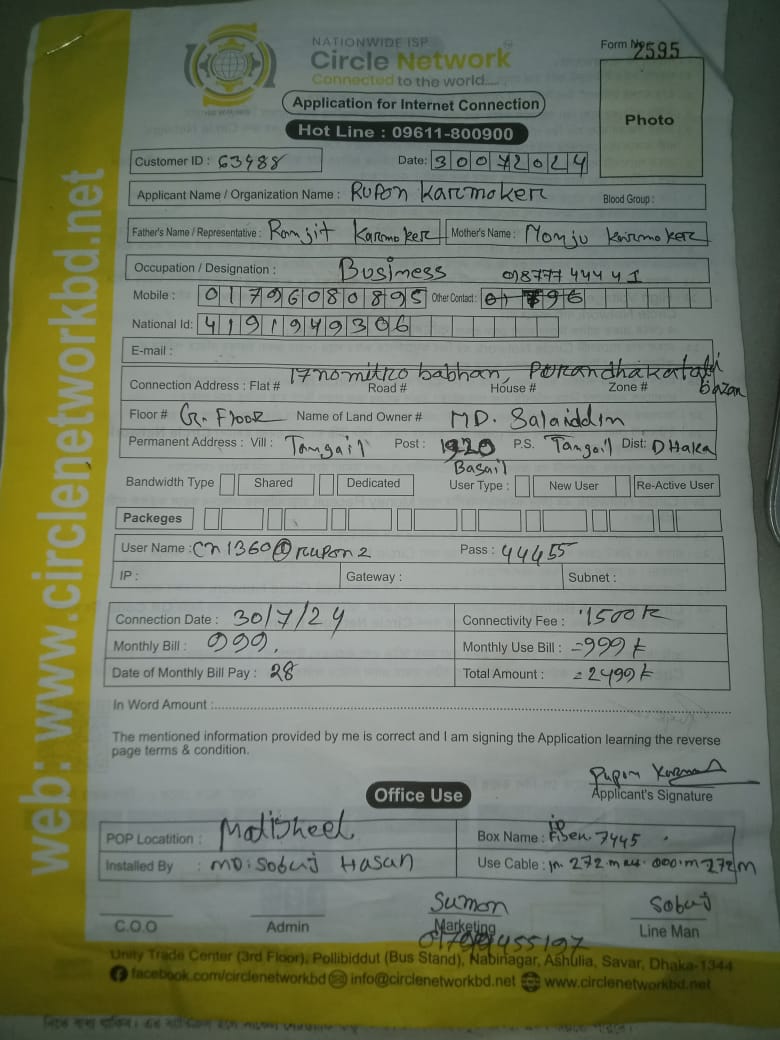 NATIONWIDE ISP
Circle Network
Connected to the world.....
Form No 2595
Application for Internet Connection
Hot Line : 09611-800900
Photo
Customer ID : 63488
Date: 30072024
Applicant Name / Organization Name : Rupon Karmoker
Blood Group :
Father's Name / Representative : Romjit Karmoker Mother's Name : Monju Karmoker
Occupation / Designation : Business 01877744441
Mobile : 01796080895 Other Contact : 01796
National Id: 4191949306
E-mail :
17 no mitro babhan, Purandhakatabi bazar
Connection Address : Flat # Road # House # Zone #
Floor # Gr. Floor Name of Land Owner # MD. Salaiddin
Permanent Address : Vill : Tangail Post : 1920 P.S. Tangail Dist: DHaka
Basail
Bandwidth Type Shared Dedicated User Type : New User Re-Active User
Packeges
User Name : cn1360@rupon2 Pass : 44455
IP : Gateway : Subnet :
Connection Date : 30/7/24 Connectivity Fee : 1500
Monthly Bill : 999. Monthly Use Bill : =999
Date of Monthly Bill Pay : 28 Total Amount : =2499
In Word Amount :
The mentioned information provided by me is correct and I am signing the Application learning the reverse
page terms & condition.
Rupon
Applicant's Signature
Office Use
POP Locatition : Motisheel Box Name : 7445
Installed By : MD: Sobuj Hasan Use Cable : 272 000 m 272m
Sumon Sobuj
C.O.O Admin Marketing Line Man
Unity Trade Center (3rd Floor), Pollibiddut (Bus Stand), Nabinagar, Ashulia, Savar, Dhaka-1344
facebook.com/circlenetworkbd info@circlenetworkbd.net www.circlenetworkbd.net
web: www.circlenetworkbd.net